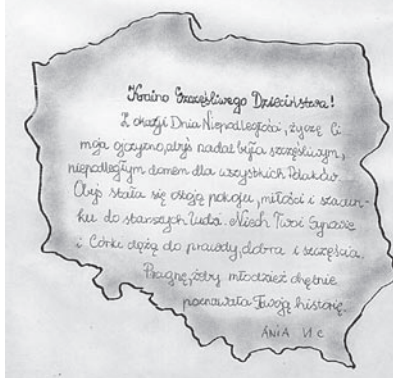 Kraino Szczęśliwego Dzieciństwa!
Z okazji Dnia Niepodległości, życzę Ci
moja ojczyzno, abyś nadal była szczęśliwym,
niepodległym domem dla wszystkich Polaków.
Obyś stała się ostoją pokoju, miłości i szacun-
ku do starszych ludzi. Niech Twoi Synowie
i Córki dążą do prawdy, dobra i szczęścia.
Pragnę, żeby młodzież chętnie
poznawała Twoją historię.
ANIA VI C